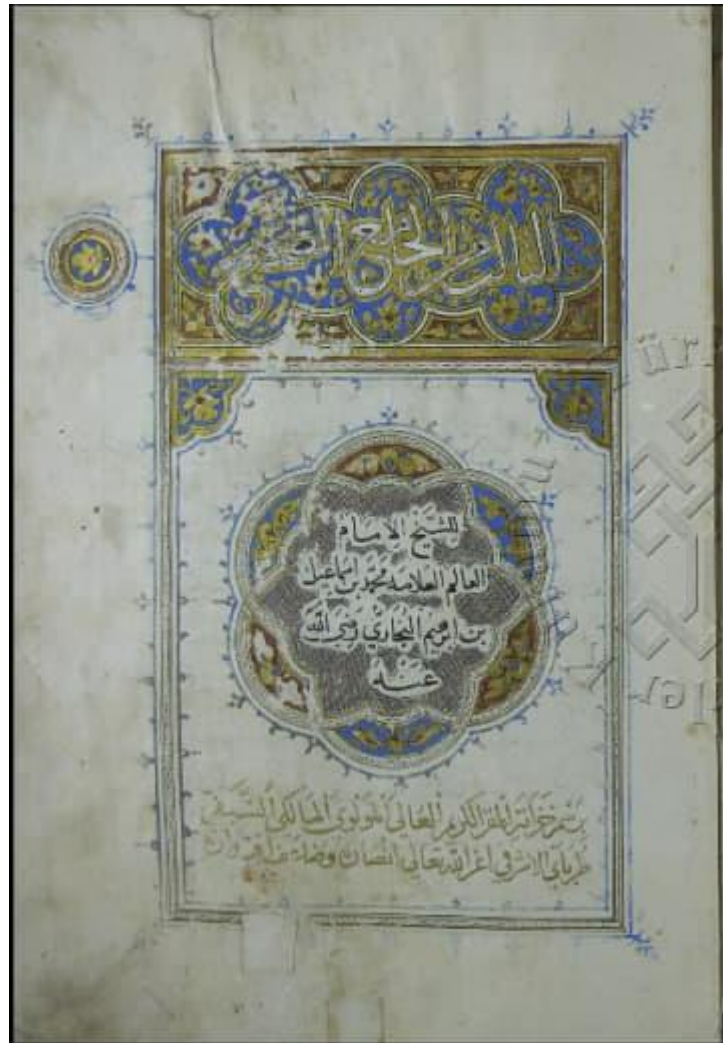 الثالث من الجامع الصحيح
للشيخ الامام
العالم العلامه محمد بن اسماعيل
بن ابرهيم البخاري رضى الله
عنه
برسم خزانة المقر الكريم العالى المولوى المالكى السيفى
طرباى الاشرفى اعز الله تعالى انصاره وضاعف